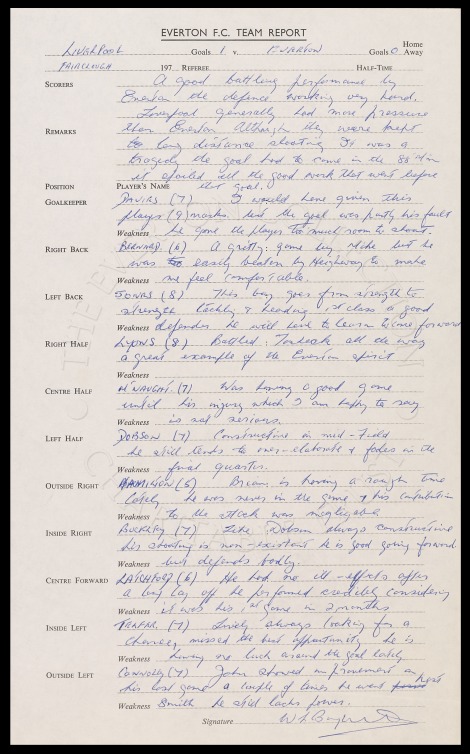 EVERTON F.C. TEAM REPORT
LIVERPOOL Goals 1 v. EVERTON Goals 0 Home Away
FAIRCLOUGH 197 REFEREE HALF-TIME
SCORERS A good battling performance by
Everton the defence working very hard.
Liverpool generally had more pressure
REMARKS than Everton Although they were kept
to long distance shooting It was a
tragedy the goal had to come in the 88 Min
it spoiled all the good work that went before
POSITION PLAYER'S NAME that goal.
GOALKEEPER DAVIES (7) I would have given this
player (9) marks. but the goal was partly his fault
Weakness he gave the player too much room to shoot.
RIGHT BACK BERNARD (6) A gritty game by Mike but he
was to easily beaten by Heighway to make
Weakness me feel comfortable.
LEFT BACK JONES (8) This boy goes from strength to
strength. Tackling & heading 1st class a good
Weakness defender he will have to learn to come forward
RIGHT HALF LYONS (8) Battled Toshack all the way
a great example of the Everton spirit
Weakness
CENTRE HALF McNAUGHT (7) Was having a good game
until his injury which I am happy to say
Weakness is not serious.
LEFT HALF DOBSON (7) Constructive in mid-field
he still tends to over-elaborate & fades in the
Weakness final quarter.
OUTSIDE RIGHT HAMILTON (5) Brian is having a rough time
lately he was never in the game & his contribution
Weakness to the attack was negligible
INSIDE RIGHT BUCKLEY (7) Like Dobson always constructive
his shooting is non-existent he is good going forward.
Weakness but defends badly.
CENTRE FORWARD LATCHFORD (6) He had no ill-effects after
a long lay off he performed credibly considering
Weakness it was his 1st game in 2 months
INSIDE LEFT TELFER (7) Lively always looking for a
chance, missed the best opportunity he is
Weakness having no luck around the goal lately
OUTSIDE LEFT CONNOLLY (7) John showed improvement on
his last game a couple of times he went past
Weakness Smith he still lacks power.
Signature